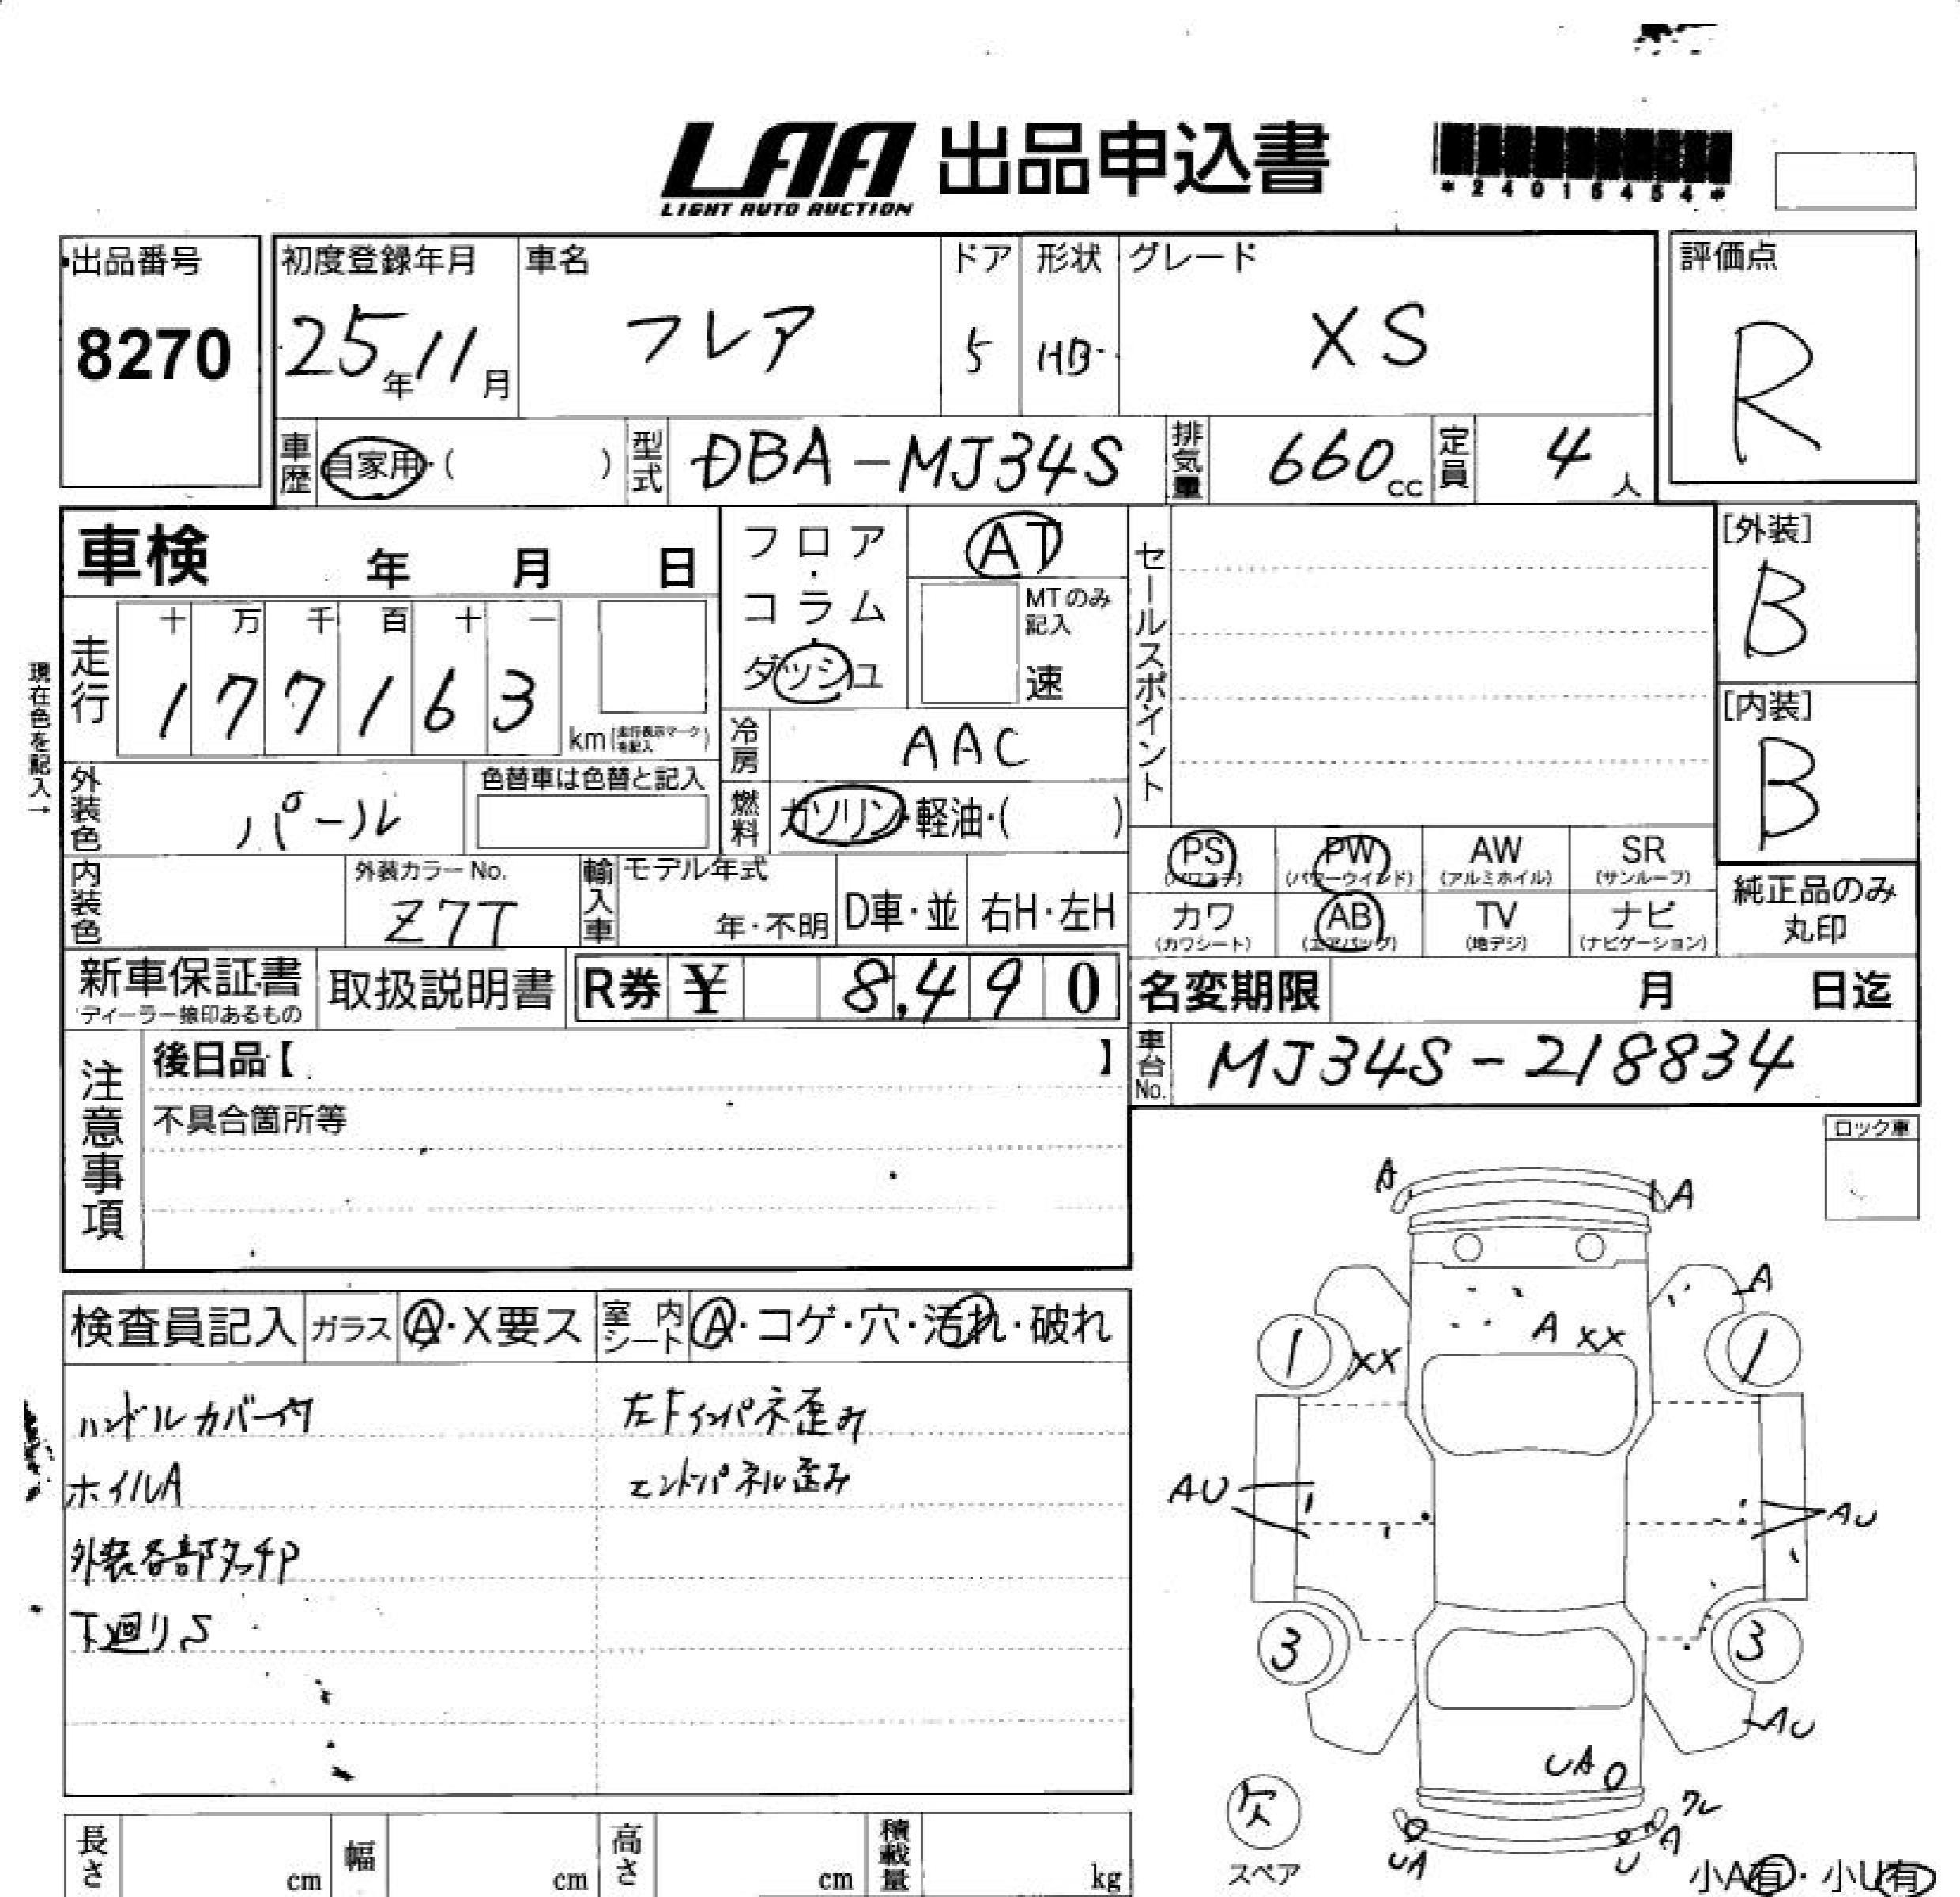 LAA 出品申込書
LIGHT AUTO AUCTION
*24016454*
出品番号 初度登録年月 車名 ドア 形状 グレード 評価点
8270 25年11月 フレア 5 HB XS R
車歴 自家用・( ) 型式 DBA-MJ34S 排気量 660cc 定員 4人
車検 年 月 日 フロア・コラム・ダッシュ AT セールスポイント [外装]
B
MTのみ記入 速
現在色を記入→
走行 十 万 千 百 十 一
1 7 7 1 6 3 km(走行表示マークを記入)
[内装]
B
冷房 AAC
外装色 パール 色替車は色替と記入 燃料 ガソリン・軽油・( )
PS PW AW SR
(パワステ) (パワーウインド) (アルミホイル) (サンルーフ)
内装色 外装カラーNo. 輸入車 モデル年式
Z7T 年・不明 D車・並 右H・左H
カワ AB TV ナビ 純正品のみ丸印
(カワシート) (エアバッグ) (地デジ) (ナビゲーション)
新車保証書 取扱説明書 R券 ¥ 8,490 名変期限 月 日迄
ディーラー捺印あるもの
注意事項 後日品【 】 車台No. MJ34S-218834
不具合箇所等
ロック車
A A
A
A XX
1 XX 1
AU AU
3 3
AU
UA
欠 ワレ
スペア UA U A
小A有・小U有
検査員記入 ガラス A・X要ス 室内シート A・コゲ・穴・汚れ・破れ
ハンドルカバー付 左Fインパネ歪み
ホイルA エンドパネル歪み
外装各部タッチP
下廻りS
長さ cm 幅 cm 高さ cm 積載量 kg